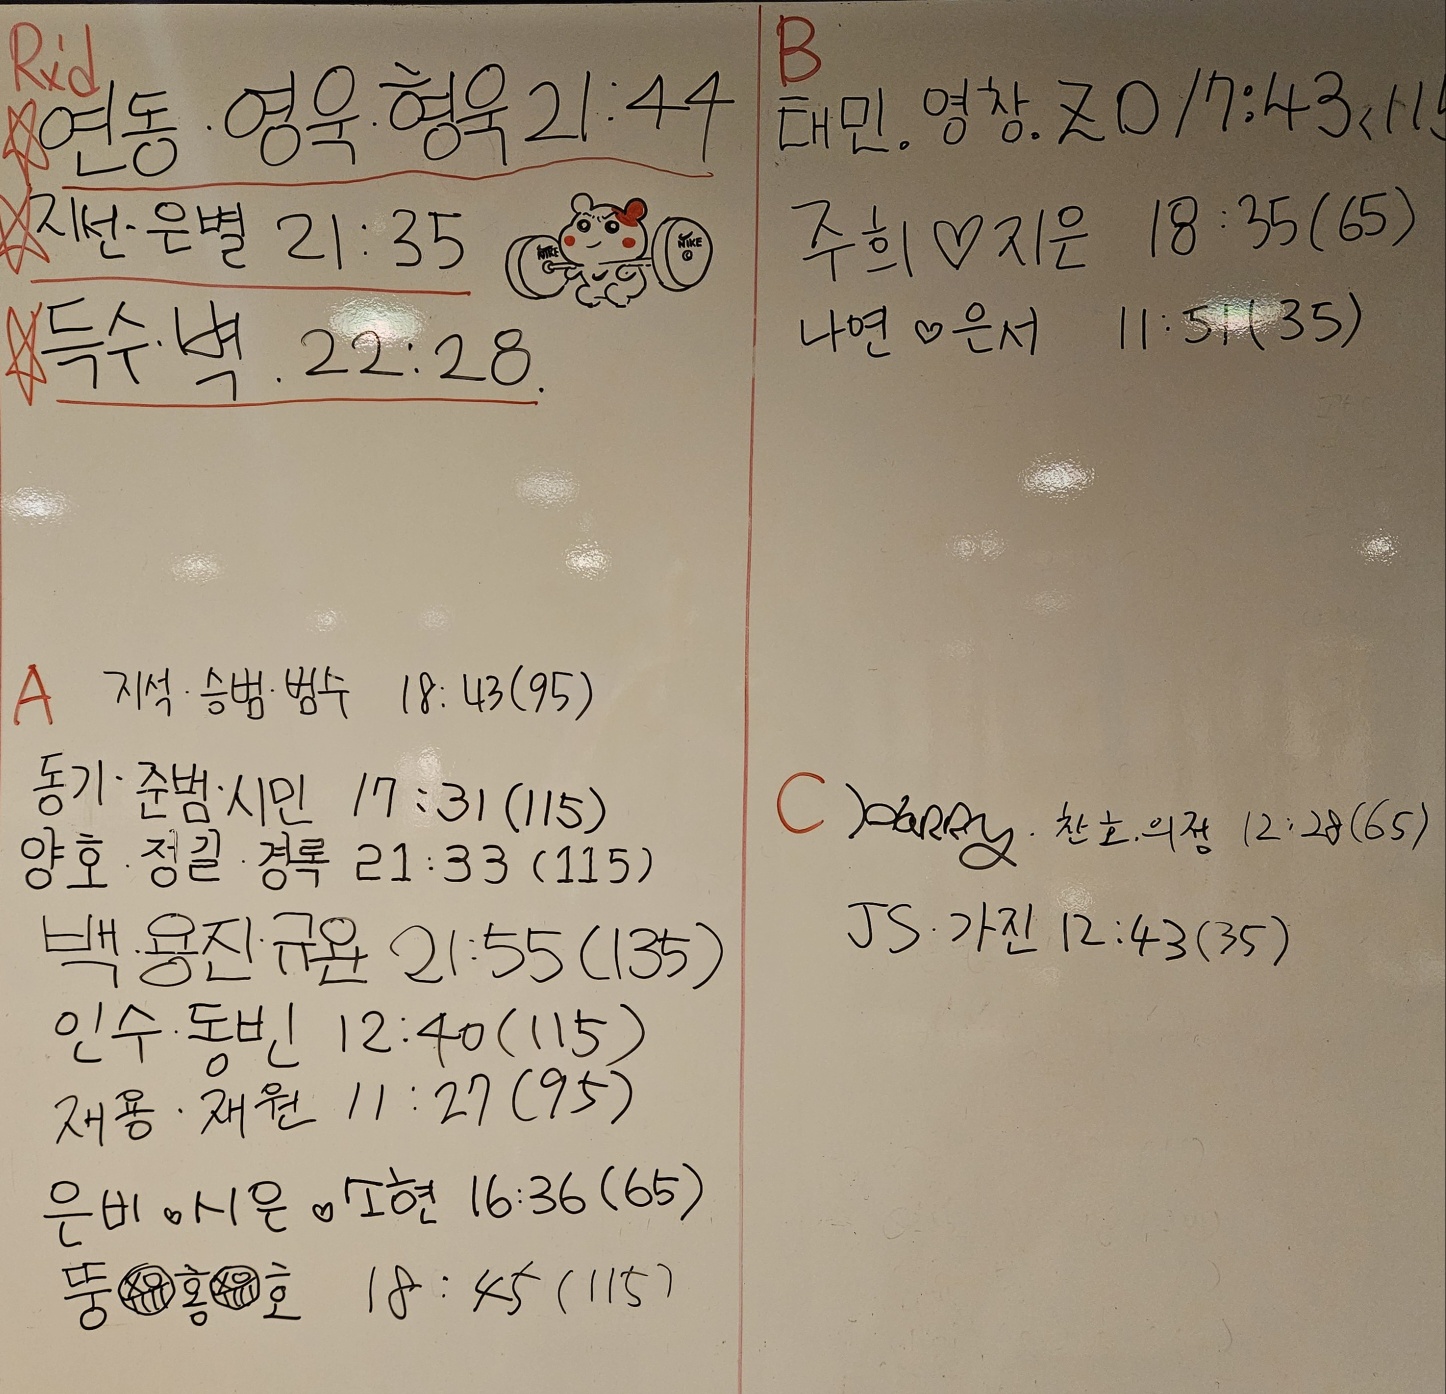 Rxd
연동·영욱·형욱 21:44
지선·은별 21:35
NIKE NIKE
득수·벽. 22:28.
A 지석·승범·범수 18:43(95)
동기·준범·시민 17:31(115)
양호·정길·경록 21:33(115)
백·용진·규완 21:55(135)
인수·동빈 12:40(115)
재용·재원 11:27(95)
은비♡시은♡소현 16:36(65)
뚱 홍 호 18:45(115)
B
태민.영창.ZO 17:43<115
주희♡지은 18:35(65)
나연♡은서 11:51(35)
C HARRY.찬호.의정 12:28(65)
JS·가진 12:43(35)